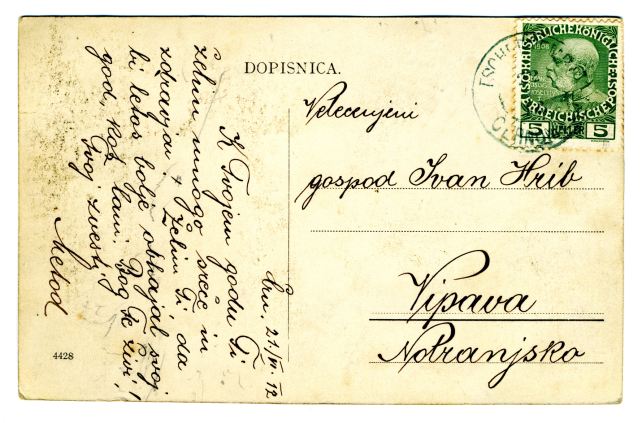 DOPISNICA.
Velecenjeni
gospod Ivan Hrib
Vipava
Notranjsko
Črn. 21/VI. 12
K Tvojem godu Ti
želim mnogo sreče in
zdravja. Želim Ti da
bi letos bolje obhajal svoj
god, kot lani. Bog Te živi!
Tvoj zvesti
Metod
4428
1908
5 5